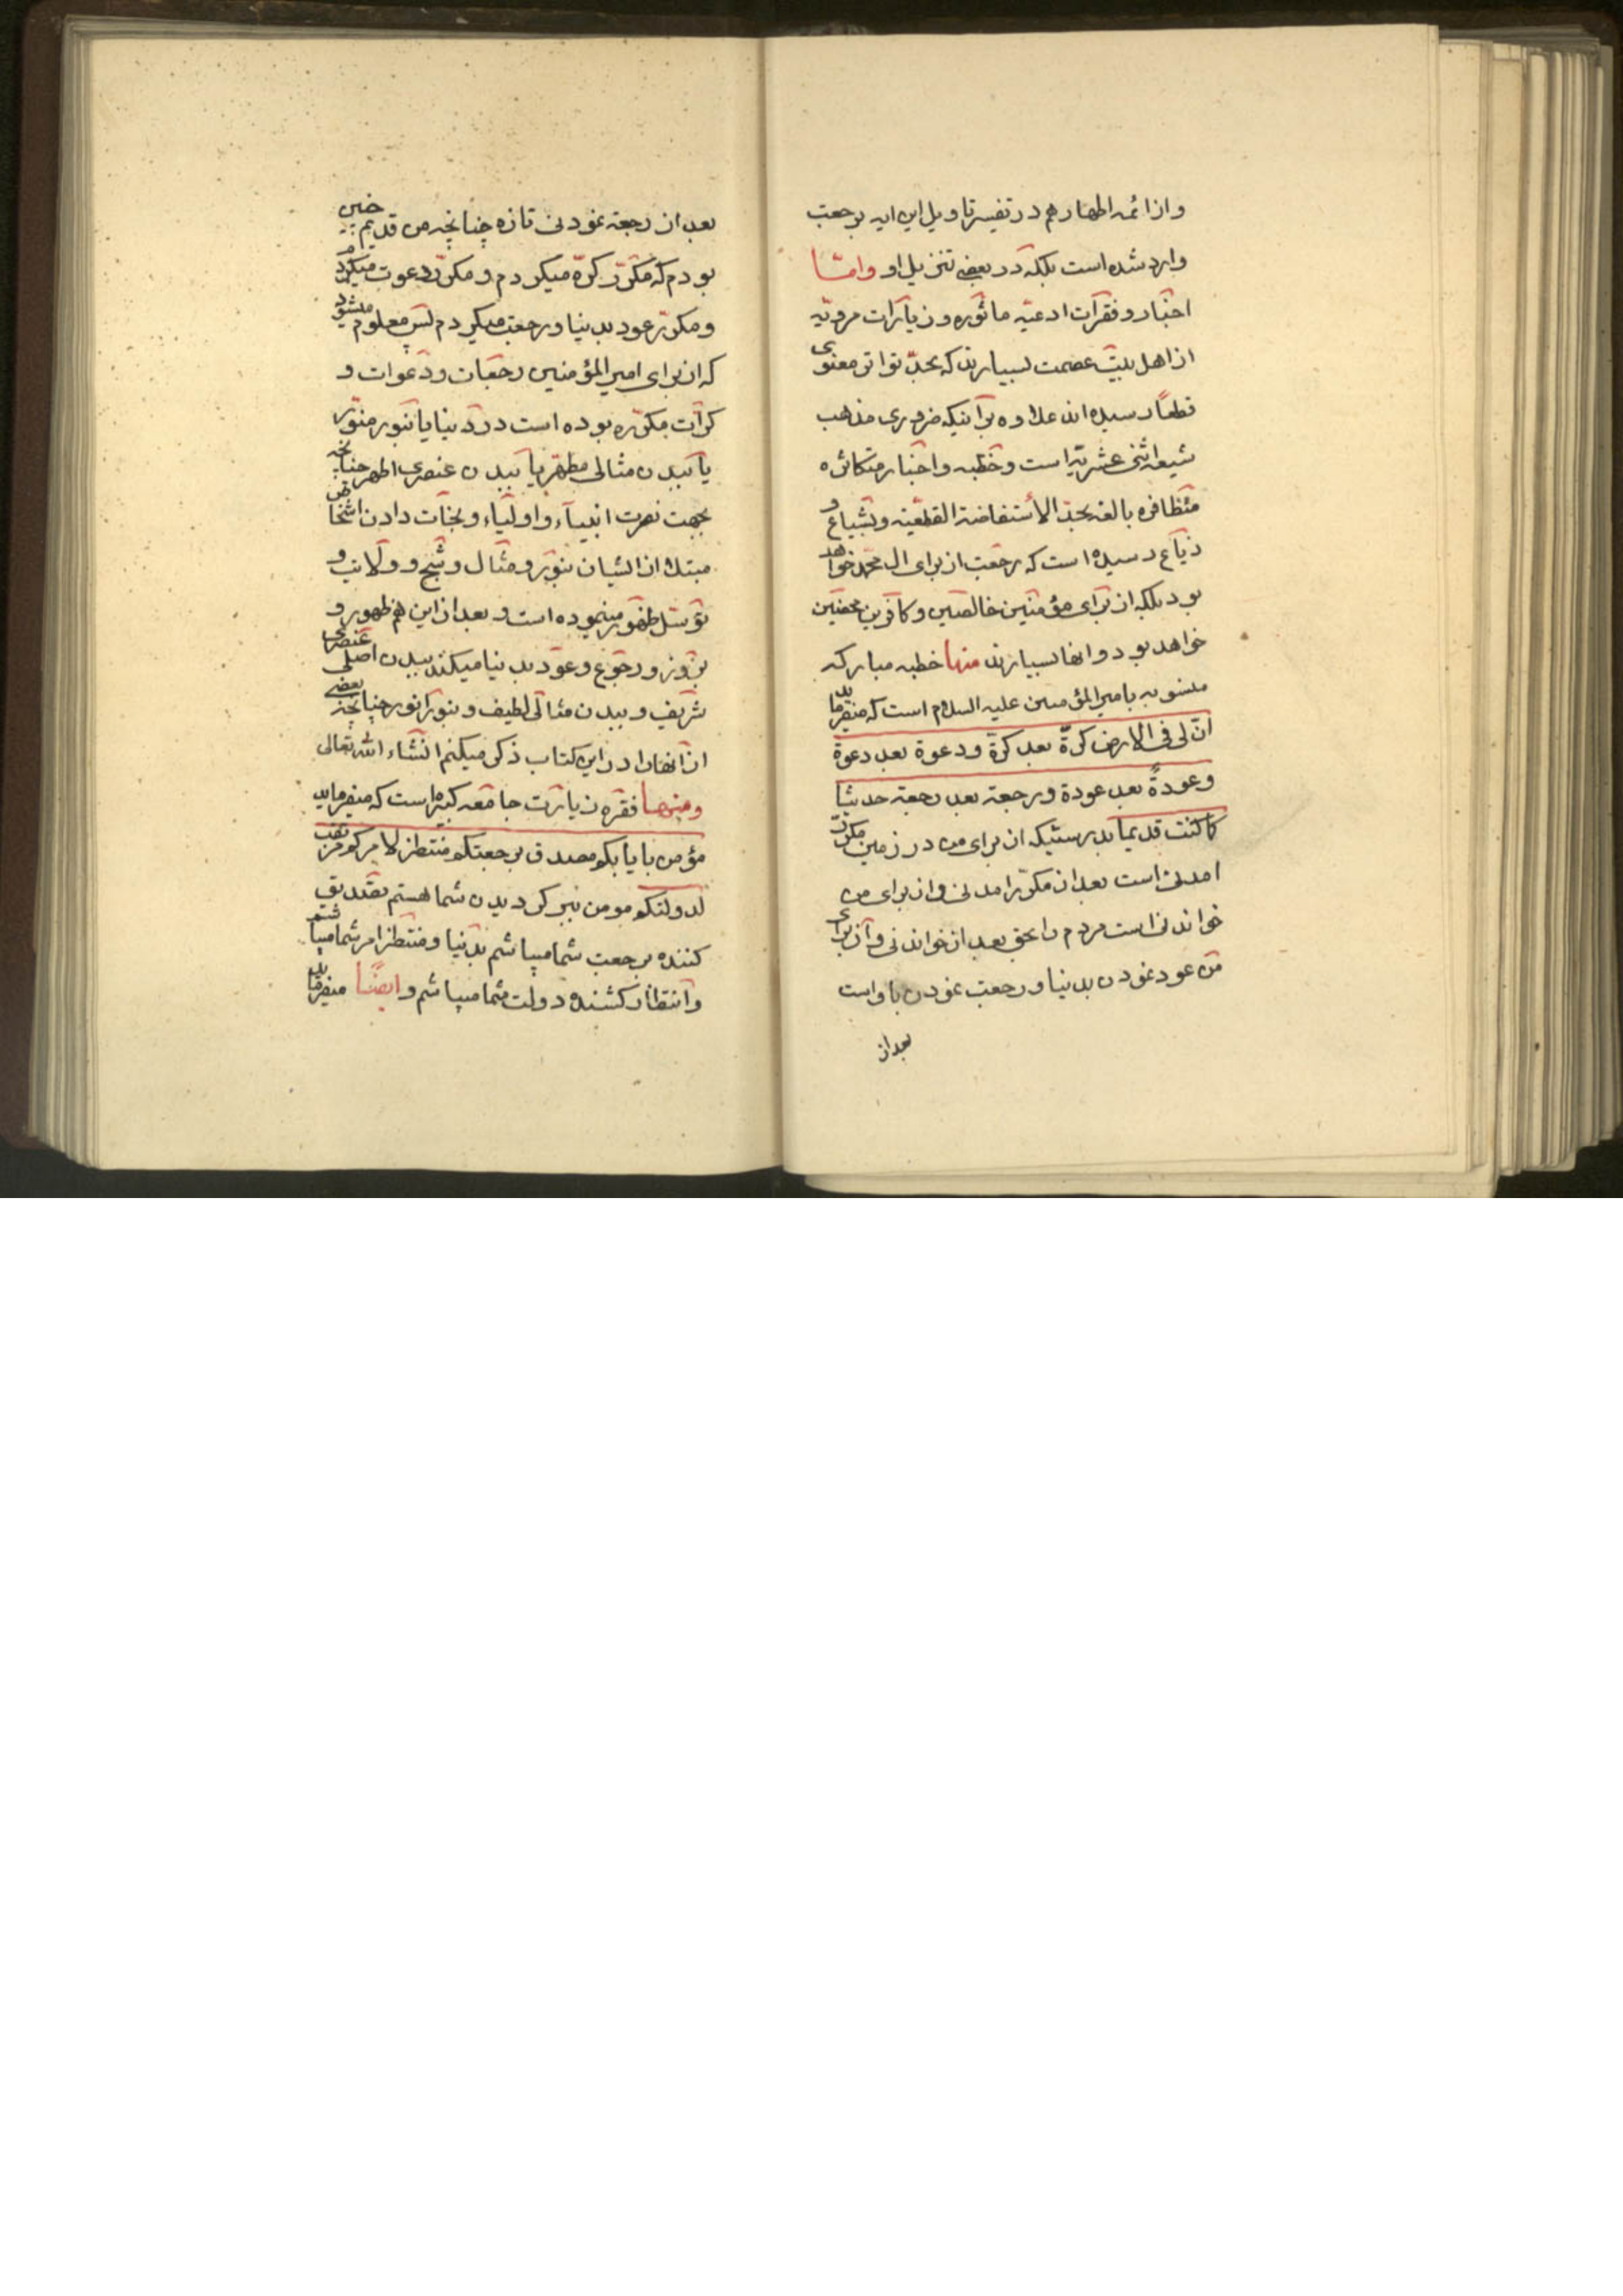 و از ائمه اطهار هم در تفسیر تاویل این ایه برجعت
وارد شده است بلکه در بعضی تنزیل او و امّا
اخبار و فقرات ادعیه ماثوره و زیارات مرویّه
از اهل بیت عصمت بسیارند که بحدّ تواتر معنوی
قطعاً رسیده اند علاوه بر اینکه ضروری مذهب
شیعه اثنی عشریّه است و خطبه و اخبار متکاثره
متظافره بالغه بحدّ الأستفاضة القطعیّة و بشیاع و
ذیاع رسیده است که رجعت از برای ال محمّد خواهد
بود بلکه از برای مؤمنین خالصین و کافرین محضین
خواهد بود و انها بسیارند منها خطبه مبارکه
منسوبه بامیرالمؤمنین علیه السلام است که میفرماید
انّ لی فی الارض کرّة بعد کرّة و دعوة بعد دعوة
و عودةً بعد عودة و رجعة بعد رجعة حدیثا
کما کنت قدیما بدرستیکه از برای من در زمین مکرّر
امدنی است بعد از مکرّر امدنی و از برای من
خواندنی است مردم را بحق بعد از خواندنی و از برای
من عود نمودن بدنیا و رجعت نمودن باو است
بعد از
بعد از رجعة نمودنی تازه چنانچه من قدیم چنین
بودم که مکرّر کرّه میکردم و مکرّر دعوت میکردم
و مکرّر عود بدنیا و رجعت میکردم پس معلوم میشود
که از برای امیرالمؤمنین رجعات و دعوات و
کرّات مکرّره بوده است در دنیا یا بنور منوّر
یا ببدن مثالی مطهّر یا ببدن عنصری اطهر چنانچه
بجهت نصرت انبیآء و اولیآء و نجات دادن اشخاص
مبتلا از ایشان بنور و مثال و شبح و ولایت و
توسّل ظهور مینموده است و بعد از این هم ظهور و
بروز و رجوع و عود بدنیا میکند ببدن اصلی عنصری
شریف و ببدن مثالی لطیف و بنور انور چنانچه بعضی
از انها را در این کتاب ذکر میکنم انشاء الله تعالی
و منها فقره زیارت جامعه کبیره است که میفرماید
مؤمن بایابکم مصدق برجعتکم منتظر لامرکم مرتقب
لدولتکم مومن ببر کردیدن شما هستم تصدیق
کننده برجعت شما میباشم بدنیا و منتظر امر شما میباشم
و انتظار کشنده دولت شما میباشم و ایضاً میفرماید